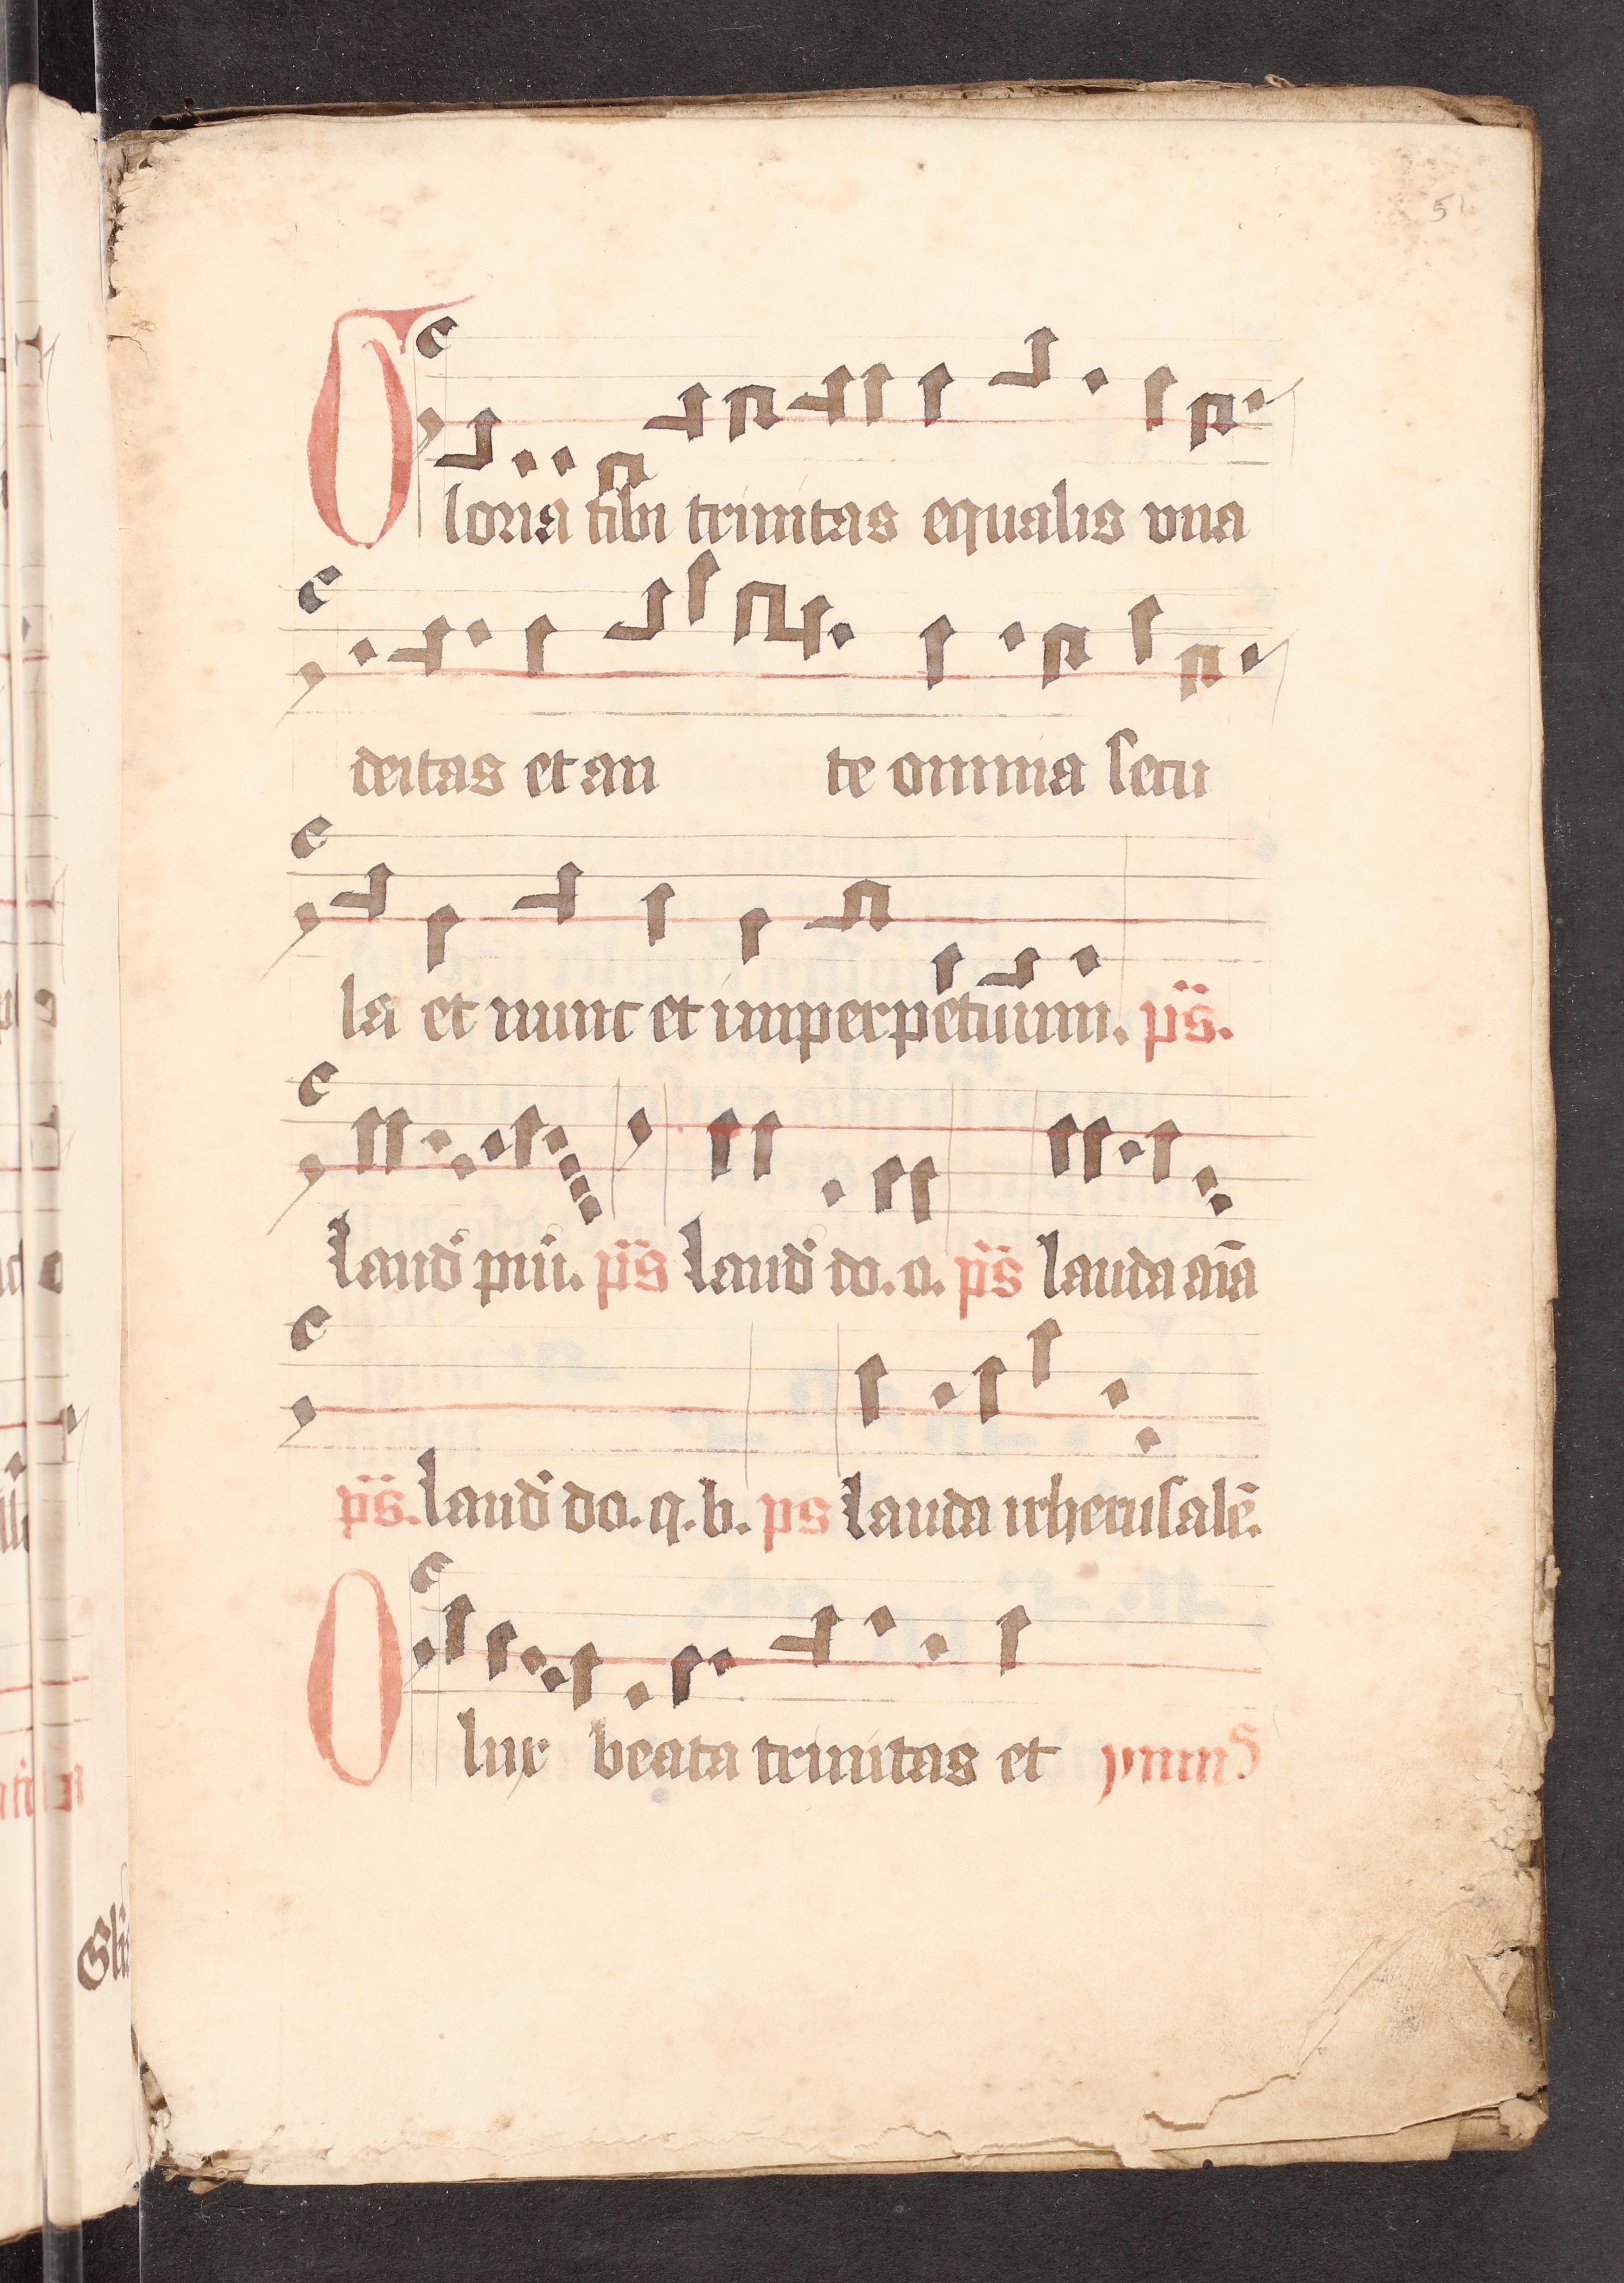 51
Gloria tibi trinitas equalis vna
deitas et an te omnia secu
la et nunc et imperpetuum. ps.
laud pu. ps laud do. o. ps lauda aīa
ps. laud do. q. b. ps lauda irherusalē.
O lux beata trinitas et ymnꝰ